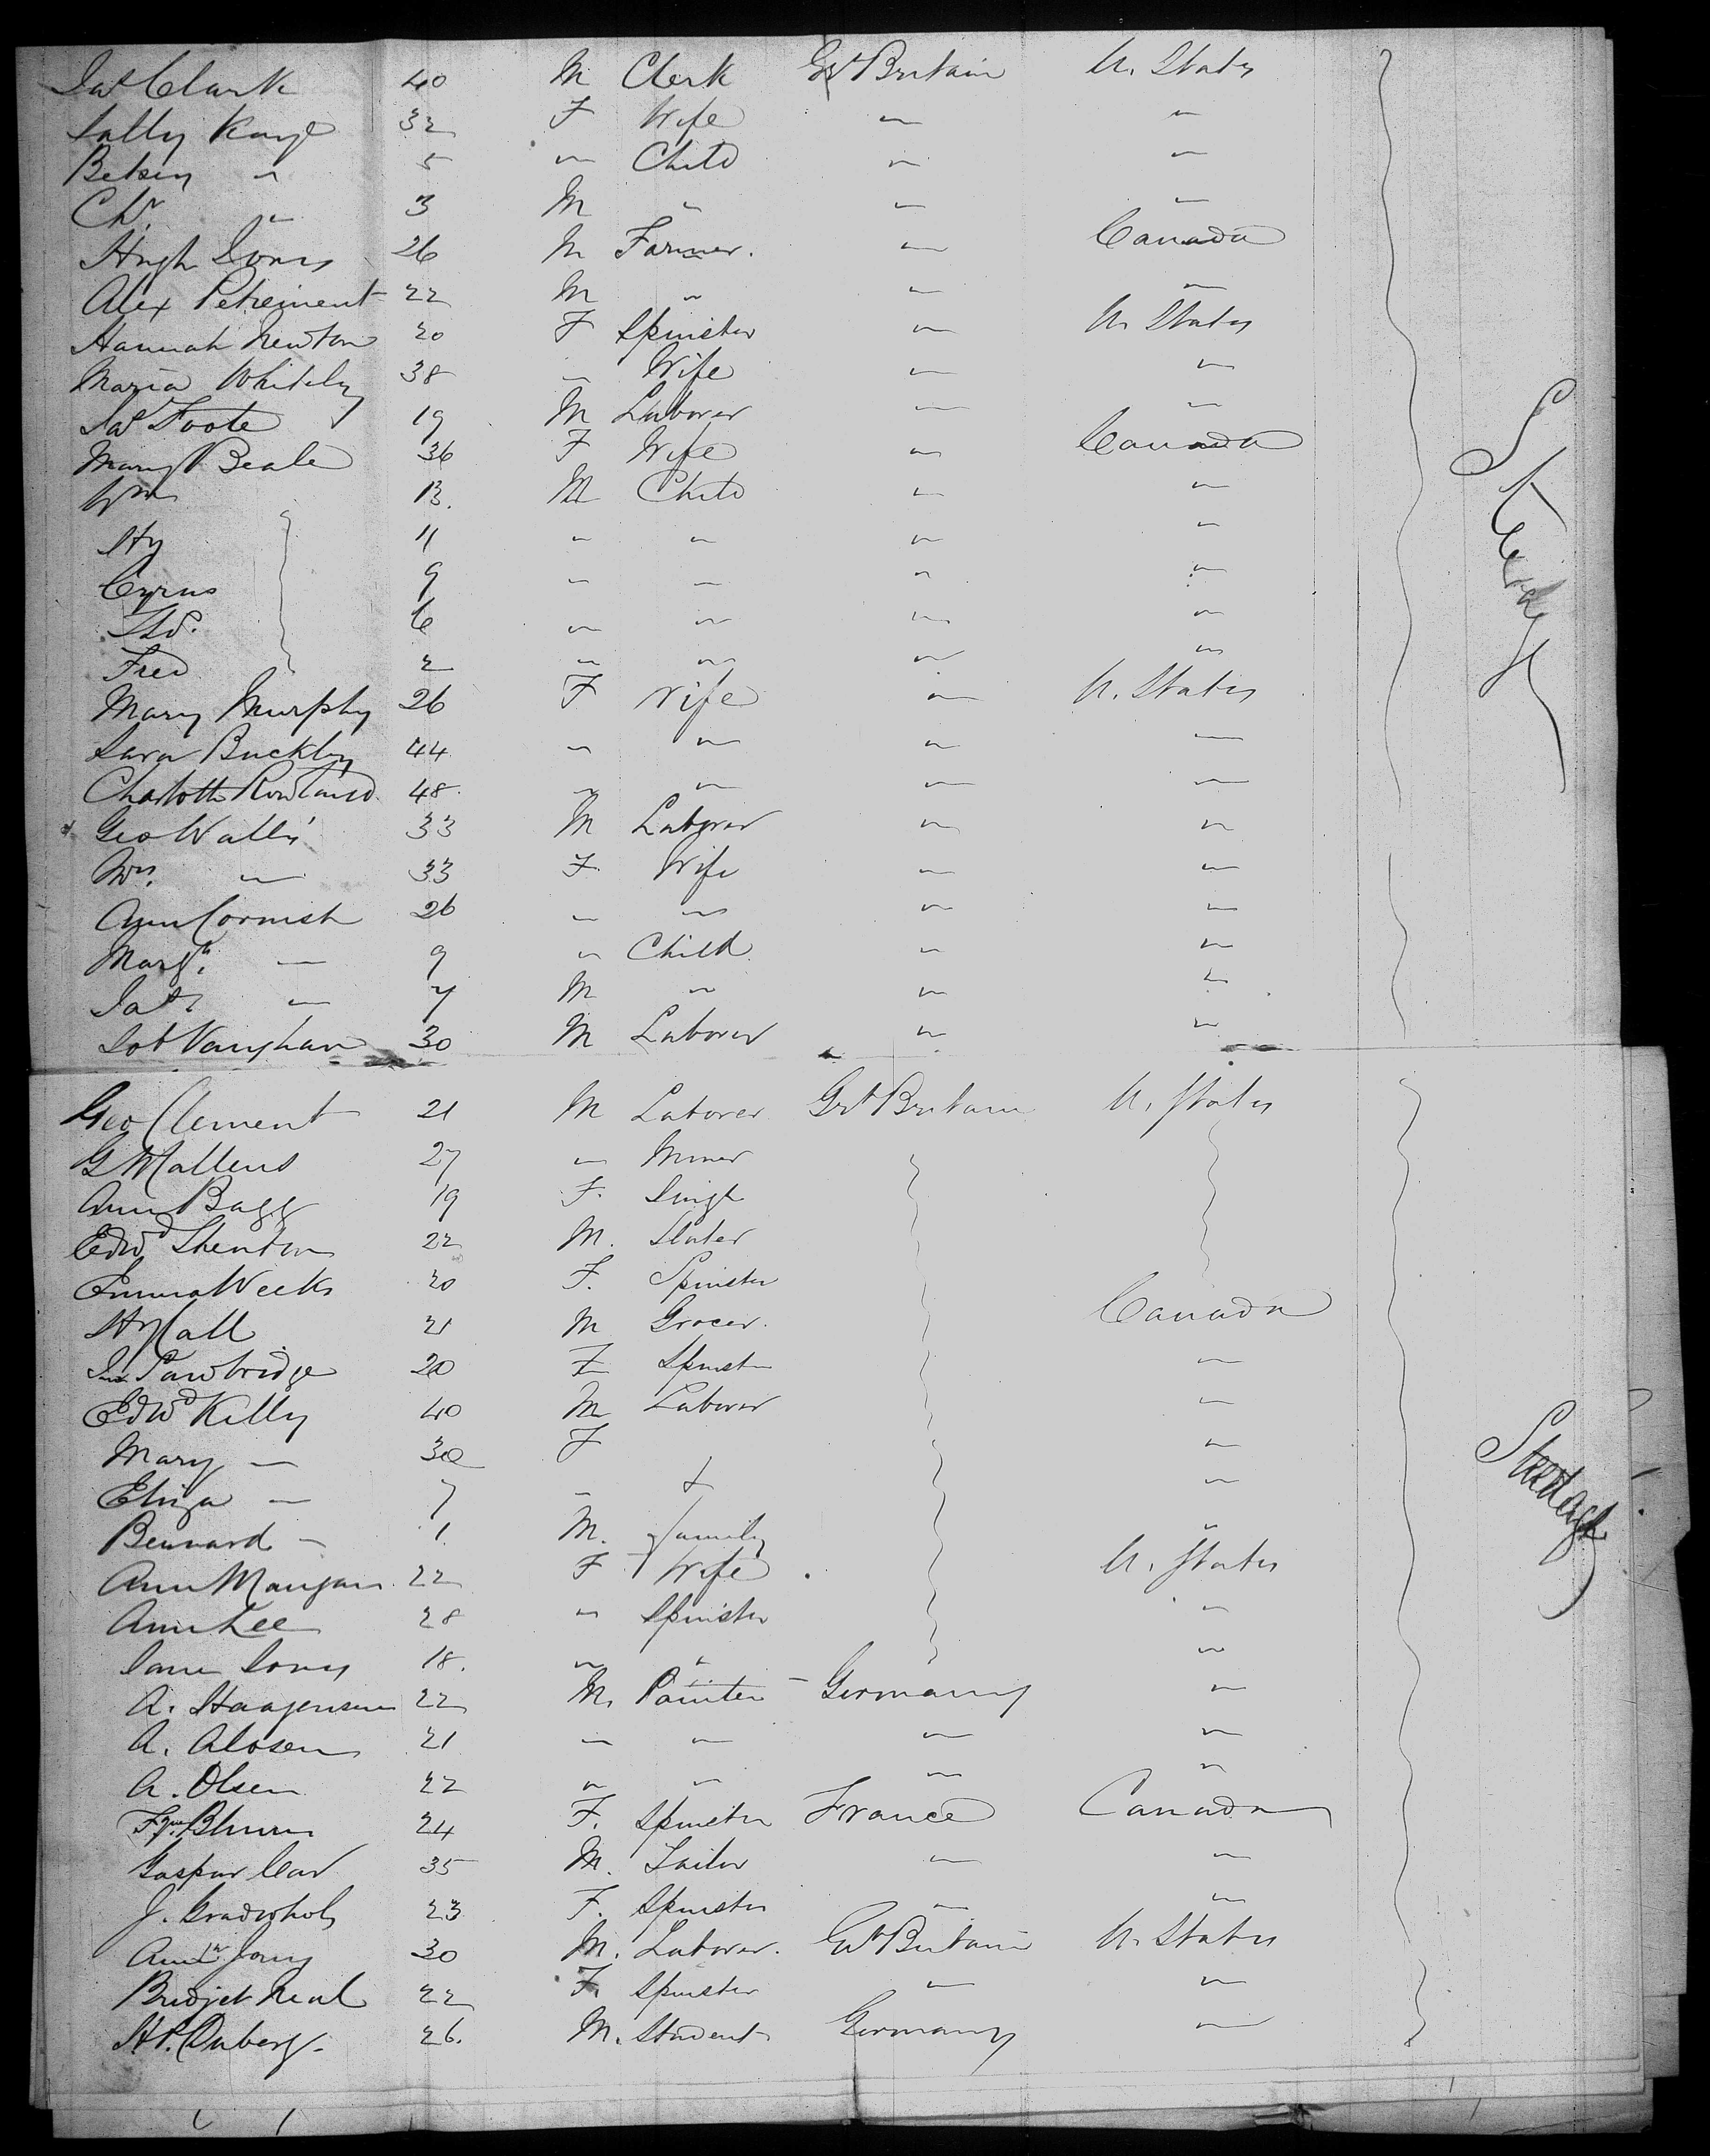 Jas Clark 40 M Clerk Gt Britain U. States
Sally Kaye 32 F Wife " "
Betsey " 5 " Child " "
Chs. " 3 M " " "
Hugh Jones 26 M Farmer. " Canada
Alex Petrement 22 M " " "
Hannah Newton 20 F Spinster " U. States
Maria Whitely 38 " Wife " "
Jas Foote 19 M Laborer " "
Mary Beale 36 F Wife " Canada
Wm 13. M Child " "
Hy 11 " " " "
Cyrus 9 " " " "
6 " " " "
Fred 2 " " " "
Mary Murphy 26 F Wife " U. States
Sara Buckley 44 " " " "
Charlotte Rowland 48 " " " "
Geo Wallis 33 M Laborer " "
Mrs. " 33 F Wife " "
Ann Cornish 26 " " " "
Margt. " 9 " Child " "
Jas. " 7 M " " "
Vaughan 30 M Laborer " "
Steerage
Geo Clement 21 M Laborer Grt Britain U. States
G Mallens 27 " Miner
Ann Bagg 19 F. Single
Edwd Shenton 22 M. Slater
Emma Weeks 20 F. Spinster
Hy Call 21 M Grocer. Canada
Pawbridge 20 F Spinster "
Edwd Kelly 40 M Laborer "
Mary " 30 F "
Eliza " 7 " "
Bernard " 1. M. family "
Ann Mangan 22 F Wife U. States
Ann Lee 28 " Spinster "
Jane Jones 18. " " "
A. Haagensen 22 M. Painter - Germany "
A. Alosen 21 " " " "
A. Olsen 22 " " " "
Blum 24 F. Spinster France Canada
Gaspar 35 M. Tailor " "
J. Gradwhol 23 F. Spinster " "
Jones 30 M. Laborer. Gt Britain U. States
Bridjet Neal 22 F. Spinster " "
H P. Duberg. 26. M. Student Germany "
Steerage